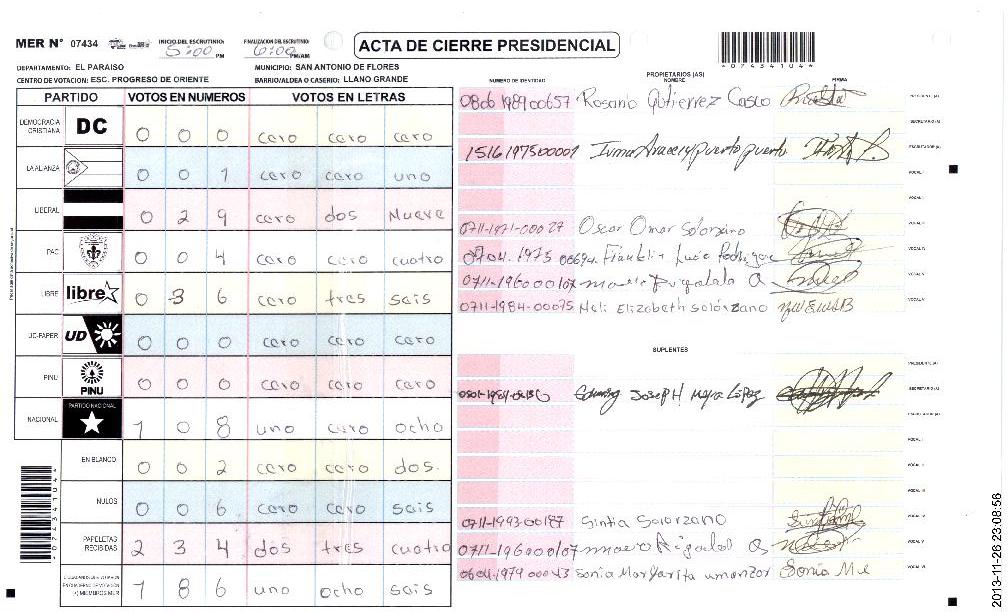 MER N° 07434
INICIO DEL ESCRUTINIO
5:00 PM
FINALIZACION DEL ESCRUTINIO
6:00 PM/AM
ACTA DE CIERRE PRESIDENCIAL
*07434104*
DEPARTAMENTO: EL PARAISO
MUNICIPIO: SAN ANTONIO DE FLORES
CENTRO DE VOTACION: ESC. PROGRESO DE ORIENTE
BARRIO/ALDEA O CASERIO: LLANO GRANDE
PARTIDO VOTOS EN NUMEROS VOTOS EN LETRAS
DEMOCRACIA CRISTIANA DC 0 0 0 cero cero cero
LA ALIANZA 0 0 1 cero cero uno
LIBERAL 0 2 9 cero dos Nueve
PAC 0 0 4 cero cero cuatro
LIBRE libre 0 3 6 cero tres seis
UD-FAPER UD 0 0 0 cero cero cero
PINU PINU 0 0 0 cero cero cero
NACIONAL PARTIDO NACIONAL 1 0 8 uno cero ocho
EN BLANCO 0 0 2 cero cero dos.
NULOS 0 0 6 cero cero seis
PAPELETAS RECIBIDAS 2 3 4 dos tres cuatro
1 8 6 uno ocho seis
*07434104*
NUMERO DE IDENTIDAD
PROPIETARIOS (AS)
NOMBRE
FIRMA
0806 1989 00657 Rosario Gutierrez Casco
PRESIDENTE (A)
SECRETARIO (A)
1516197500009 Irma Aracely puerto puerto
ESCRUTADOR (A)
VOCAL I
VOCAL II
0711-1971-00027 Oscar Omar Solorzano
VOCAL III
0704.1975 00694. Franklin
VOCAL IV
0711-196000107
VOCAL V
0711-1984-00075 Neli Elizabeth solórzano
SUPLENTES
PRESIDENTE (A)
Joseph López
SECRETARIO (A)
ESCRUTADOR (A)
VOCAL I
VOCAL II
VOCAL III
0711-1993-00187 Sintia Solorzano
VOCAL IV
0711-196000107
VOCAL V
0604-1979 00043 Sonia Margarita umanzor Sonia
VOCAL VI
2013-11-26 23:08:56